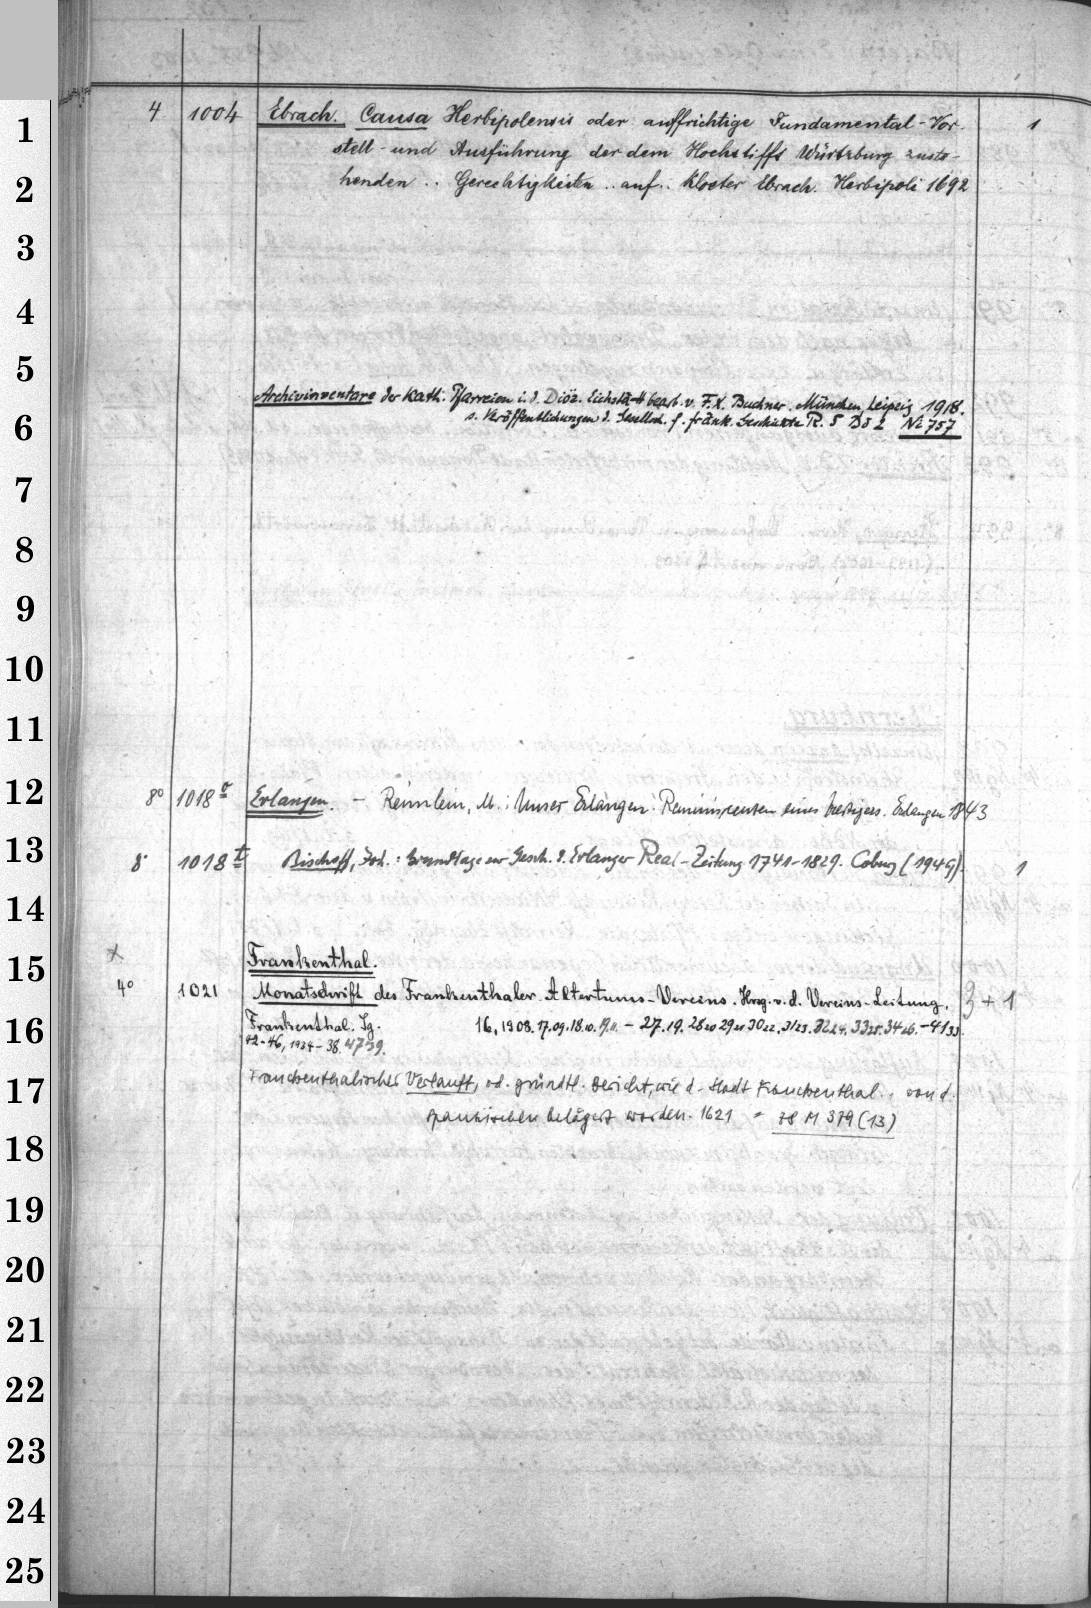 4 1004 Ebrach. Causa Herbipolensis oder auffrichtige Fundamental-Vor- 1
stell- und Ausführung der dem Hochstifft Würtzburg zuste-
henden .. Gerechtigkeiten .. auf .. Kloster Ebrach. Herbipoli 1692
Archivinventare der Kath. Pfarreien i. d. Diöz. Eichstätt bearb. v. F. X. Buchner. München, Leipzig 1918.
s. Veröffentlichungen d. Gesellsch. f. fränk. Geschichte R. 5 Bd 2 No 757
8° 1018 Erlangen. - Reinlein, M.: Unser Erlangen: Reminiscenzen eines Erlangen 1843
8° 1018 t Bischoff, Joh.: Grundlage zur Gesch. d. Erlanger Real-Zeitung 1741-1829. Coburg (1949). 1
x Frankenthal.
4° 1021 Monatschrift des Frankenthaler Altertums-Vereins. Hrsg. v. d. Vereins-Leitung. 3+1
Frankenthal. Jg. 16, 1908. 17.09. 18.10. 19.11. - 27.19. 28 20 29 21 30 22, 31 23. 32 24, 33 25. 34 26. - 41 33.
42-46, 1934-38. 47 39.
Franckenthalischer Verlauff, od. gründtl. Bericht, wie d. Stadt Franckenthal .. von d.
Spanischen belägert worden. 1621 = 78 M 379 (13)
1
2
3
4
5
6
7
8
9
10
11
12
13
14
15
16
17
18
19
20
21
22
23
24
25